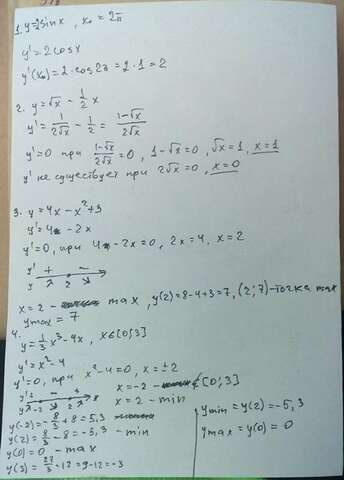 1. y=2sinx, x₀ = 2π
y' = 2cosx
y'(x₀) = 2·cos2π = 2·1 = 2
2. y = √x - 1/2 x
y' = 1/(2√x) - 1/2 = (1-√x)/(2√x)
y'=0 при (1-√x)/(2√x) = 0, 1-√x=0, √x=1, x=1
y' не существует при 2√x=0, x=0
3. y=4x-x²+3
y'=4 - 2x
y'=0, при 4 - 2x=0, 2x=4, x=2
y' + -
y 2
x=2 - max, y(2)=8-4+3=7, (2;7)-точка max
ymax = 7
4. y=1/3 x³-4x, x∈[0;3]
y'=x²-4
y'=0, при x²-4=0, x=±2
y' + - +
y -2 2
x=-2 - ∉[0;3]
x=2 - min
y(-2)=-8/3+8=5,3
y(2)=8/3-8=-5,3 - min
y(0)=0 - max
y(3)=27/3-12=9-12=-3
ymin=y(2)=-5,3
ymax=y(0)=0